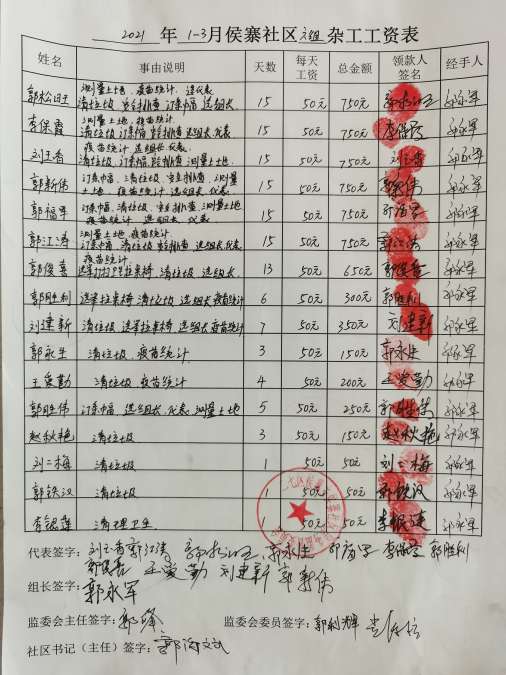 2021 年 1-3 月侯寨社区 六组 杂工工资表
姓名 事由说明 天数 每天工资 总金额 领款人签名 经手人
测量土地、疫苗统计、选代表 清垃圾 安全排查 订条幅 选组长 15 50元 750元 郭永军
李保霞 测量土地、疫苗统计 清垃圾 订条幅 选组长代表 15 50元 750元 李保霞 郭永军
刘玉香 疫苗统计、选组长代表 清垃圾、订条幅 测量土地 15 50元 750元 刘玉香 郭永军
郭新伟 订条幅、清垃圾 安全排查 测量土地 疫苗统计 选组长代表 15 50元 750元 郭新伟 郭永军
郭福军 订条幅、清垃圾 安全排查、测量土地 疫苗统计 选组长、代表 15 50元 750元 郭永军
郭江涛 测量土地、疫苗统计 订条幅、清垃圾 安全排查 选组长代表 15 50元 750元 郭江涛 郭永军
郭俊喜 疫苗统计 清垃圾 选组长 13 50元 650元 郭俊喜 郭永军
郭胜利 选举拉桌椅 清垃圾 选组长 疫苗统计 6 50元 300元 郭胜利 郭永军
刘建新 清垃圾 选举拉桌椅 选组长 疫苗统计 7 50元 350元 刘建新 郭永军
郭永生 清垃圾 疫苗统计 3 50元 150元 郭永生 郭永军
王爱勤 清垃圾 疫苗统计 4 50元 200元 王爱勤 郭永军
郭胜伟 订条幅 选组长、代表 测量土地 5 50元 250元 郭胜伟 郭永军
赵秋艳 清垃圾 3 50元 150元 赵秋艳 郭永军
刘二梅 清垃圾 1 50元 50元 刘二梅 郭永军
郭铁汉 清垃圾 1 50元 50元 郭铁汉 郭永军
李银莲 清理卫生 1 50元 50元 李银莲 郭永军
代表签字: 刘玉香 郭江涛 郭永生 郭福军 李保霞 郭胜利
郭俊喜 王爱勤 刘建新 郭新伟
组长签字: 郭永军
监委会主任签字: 郭峰 监委会委员签字: 郭利辉
社区书记（主任）签字: